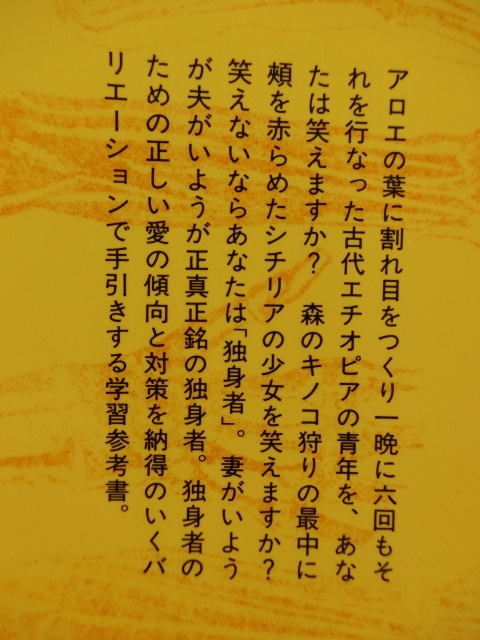 アロエの葉に割れ目をつくり一晩に六回もそ
れを行なった古代エチオピアの青年を、あな
たは笑えますか？　森のキノコ狩りの最中に
頰を赤らめたシチリアの少女を笑えますか？
笑えないならあなたは「独身者」。妻がいよう
が夫がいようが正真正銘の独身者。独身者の
ための正しい愛の傾向と対策を納得のいくバ
リエーションで手引きする学習参考書。